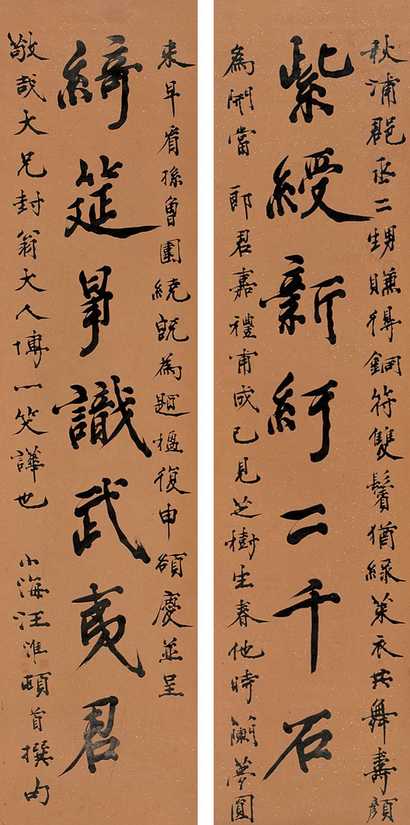 秋浦郡丞二甥賺得銅符雙鬢猶綠萊衣共舞壽顏
紫綬新紆二千石
為開當郎君嘉禮甫成已見芝樹生春他時蘭夢圓
來早看孫曾圍繞說為題楹復申頌慶並呈
綺筵識武夷君
敬哉大兄封翁大人博一笑譁也 小海汪淮頓首撰句